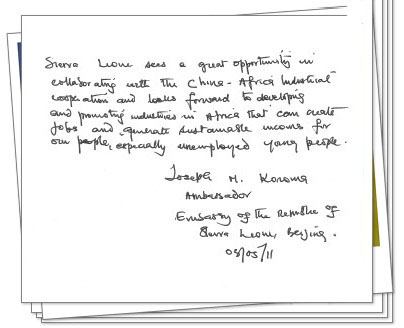 Sierra Leone sees a great opportunity in
collaborating with the China - Africa Industrial
cooperation and looks forward to developing
and promoting industries in Africa that can create
Jobs and generate sustainable income for
our people, especially unemployed young people.
Joseph M. Koroma
Ambassador
Embassy of the Republic of
Sierra Leone, Beijing.
05/05/11